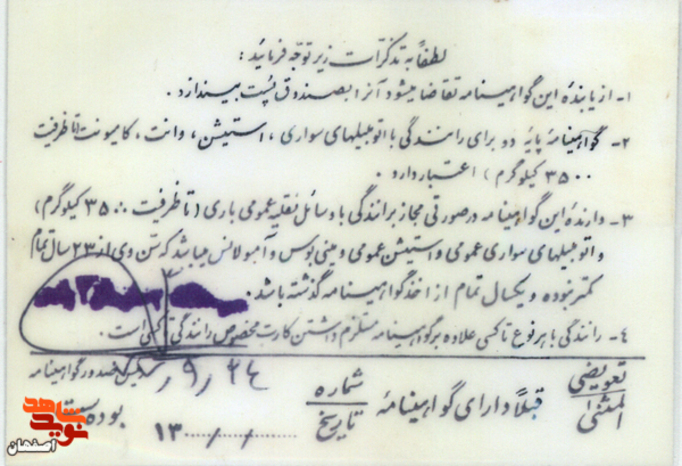 لطفاً به تذکرات زیر توجه فرمائید :
۱- از یابنده این گواهینامه تقاضا میشود آنرا بصندوق پست بیندازد .
۲- گواهینامه پایه دو برای رانندگی با اتومبیلهای سواری ، استیشن ، وانت ، کامیونت (تا ظرفیت
۳۵۰۰ کیلوگرم ) اعتبار دارد .
۳- دارنده این گواهینامه در صورتی مجاز برانندگی با وسائل نقلیه عمومی باری ( تا ظرفیت ۳۵۰۰ کیلوگرم )
و اتومبیلهای سواری عمومی و استیشن عمومی و مینی بوس و آمبولانس میباشد که سن وی از ۲۳ سال تمام
کمتر نبوده و یکسال تمام از اخذ گواهینامه گذشته باشد .
۴- رانندگی با هر نوع تاکسی علاوه بر گواهینامه مستلزم داشتن کارت مخصوص رانندگی تاکسی است .
صدور گواهینامه
تعویضی
المثنی
قبلاً دارای گواهینامهٔ
شماره
تاریخ
۱۳۰۰۰/۰۰۰/۰۰۰
بوده
شاهد
نوید
اصفهان